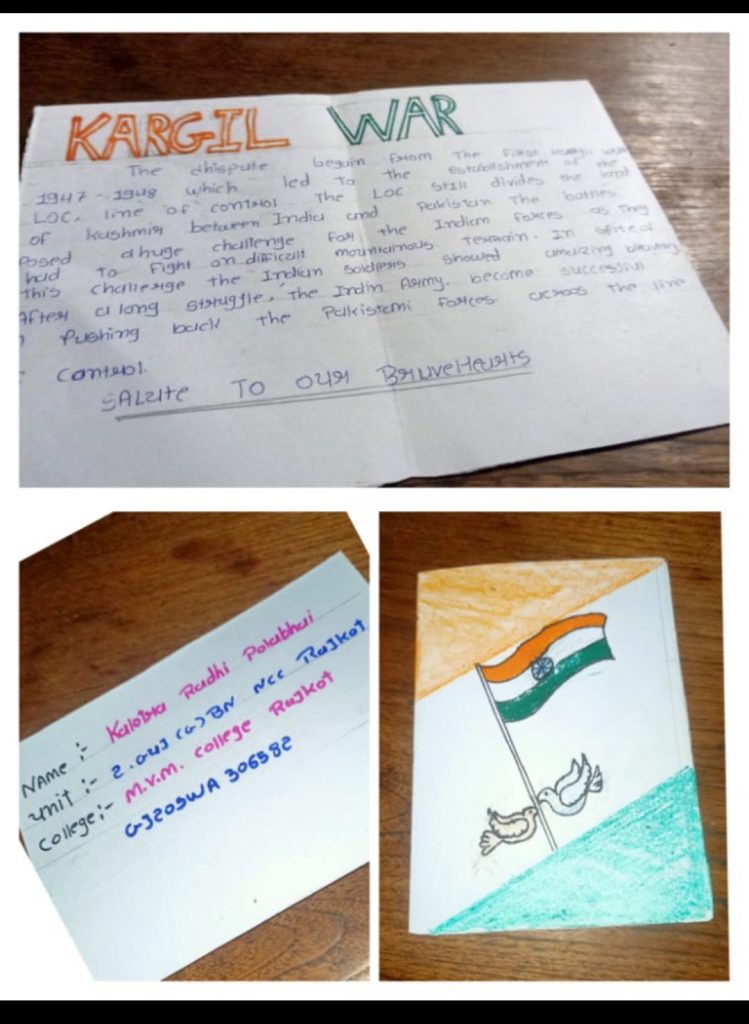 KARGIL WAR
The dhispute begain from the First Kargil war
1947-1948 which led to the Establishment of the
LOC, line of control The LOC still divides the land
of kashmir between India and Pakistan The battles
Posed a huge challenge for the Indian forces as They
had to Fight on difficult mountainous Terrain. In spite of
this challenge the Indian soldiers showed amazing bravery.
After a long struggle, the Indin Army. become successful
Pushing back the Palkistani forces across the line
Control.
SALUTE TO OUR BraveHearts
NAME :- Kalotra Radhi Polabhai
Unit :- 2. GUJ (G) BN NCC Rajkot
College:- M.V.M. College Rajkot
GJ20SWA 306582